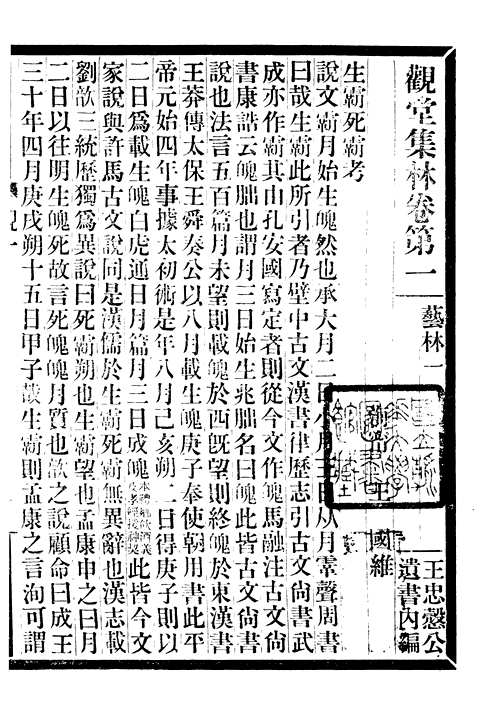 觀堂集林卷第一
藝林一
王忠慤公
遺書內編
王
國維
生霸死霸考
說文霸月始生魄然也承大月二日小月三日从月䨣聲周書
曰哉生霸此所引者乃壁中古文漢書律歷志引古文尙書武
成亦作霸其由孔安國寫定者則從今文作魄馬融注古文尙
書康誥云魄朏也謂月三日始生兆朏名曰魄此皆古文尙書
說也法言五百篇月未望則載魄於西旣望則終魄於東漢書
王莽傳太保王舜奏公以八月載生魄庚子奉使朝用書此平
帝元始四年事據太初術是年八月己亥朔二日得庚子則以
二日爲載生魄白虎通日月篇月三日成魄此皆今文
家說與許馬古文說同是漢儒於生霸死霸無異辭也漢志載
劉歆三統歷獨爲異說曰死霸朔也生霸望也孟康申之曰月
二日以往明生魄死故言死魄魄月質也歆之說顧命曰成王
三十年四月庚戌朔十五日甲子哉生霸則孟康之言洵可謂